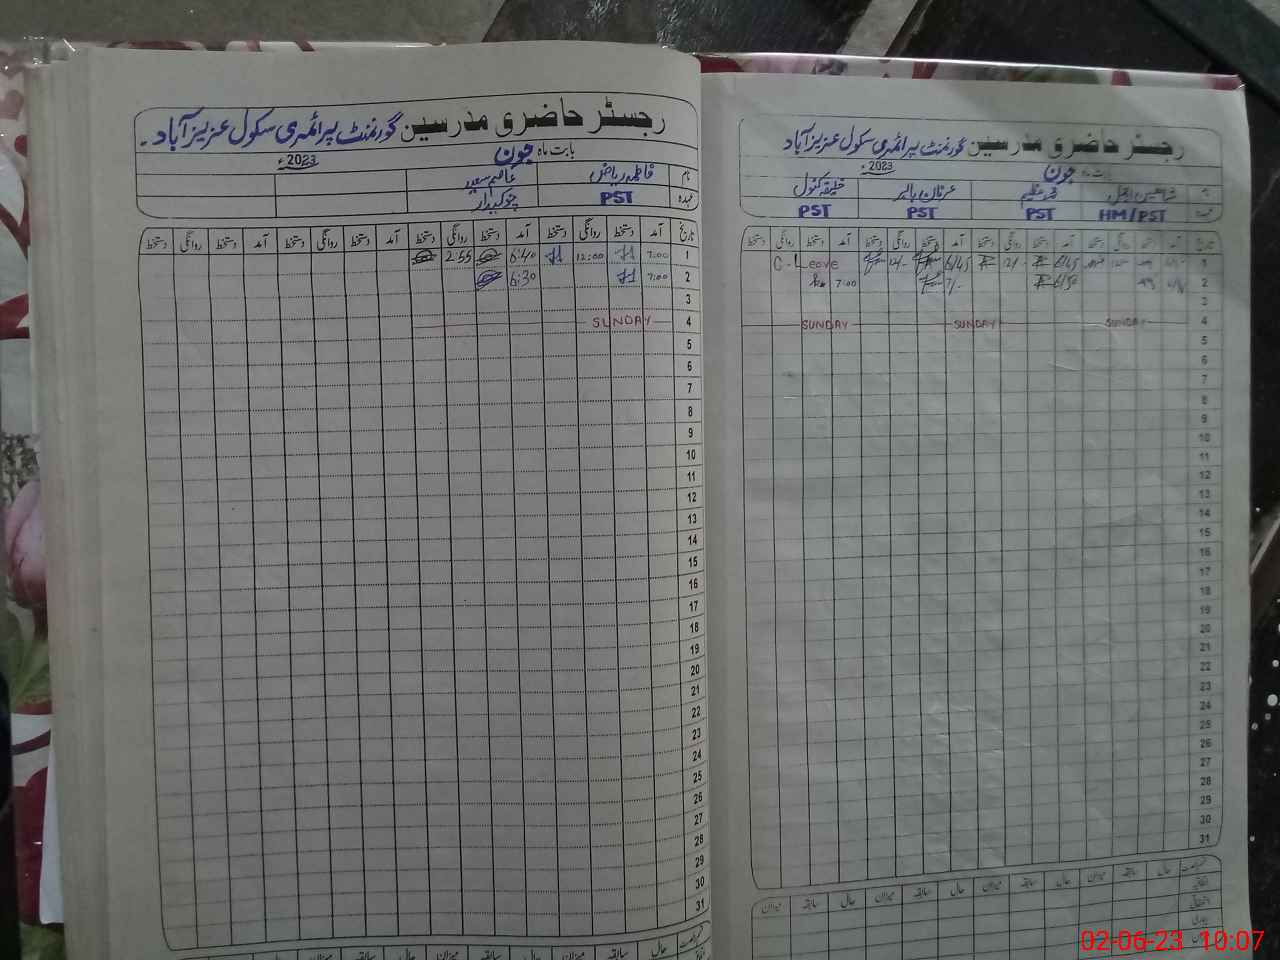 رجسٹر حاضری مدرسین گورنمنٹ پرائمری سکول عزیز آباد۔
بابت ماہ جون 2023ء
نام فاطمہ ریاض عاصم سعید
عہدہ PST چوکیدار
تاریخ آمد دستخط روانگی دستخط آمد دستخط روانگی دستخط آمد دستخط روانگی دستخط آمد دستخط روانگی دستخط
1 7:00 12:00 6:40 2:55
2 7:00 6:30
3
4 SUNDAY
5
6
7
8
9
10
11
12
13
14
15
16
17
18
19
20
21
22
23
24
25
26
27
28
29
30
31
حال سابقہ میزان حال سابقہ میزان حال سابقہ میزان حال سابقہ میزان
رجسٹر حاضری مدرسین گورنمنٹ پرائمری سکول عزیز آباد
بابت ماہ جون 2023ء
نام محمد عظیم عرفان بابر
عہدہ HM/PST PST PST PST
تاریخ آمد دستخط روانگی دستخط آمد دستخط روانگی دستخط آمد دستخط روانگی دستخط آمد دستخط روانگی دستخط
1 6/45 12/- 6/45 12/- C-Leave
2 6/50 7/- 7:00
3
4 SUNDAY SUNDAY SUNDAY
5
6
7
8
9
10
11
12
13
14
15
16
17
18
19
20
21
22
23
24
25
26
27
28
29
30
31
حال سابقہ میزان حال سابقہ میزان حال سابقہ میزان حال سابقہ میزان
اتفاقیہ
استحقاقی
بیماری
02-06-23 10:07